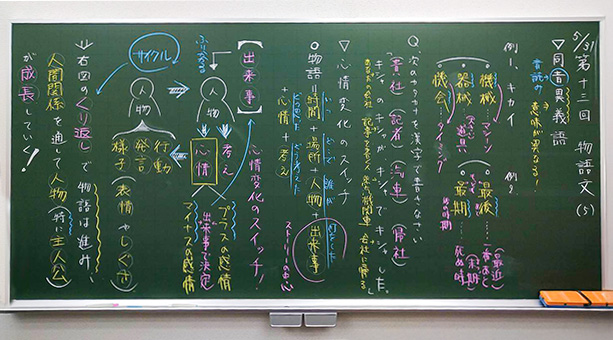 5/31 第十三回 物語文(5)
▽同音異義語
音読の意味が異なる!
例1、キカイ
機械…マシーン
器械…道具
機会…タイミング
例2、
最後…一番あと
最期…死ぬ時
(最近)
(末期)
Q、次のカタカナを漢字で書きなさい
(貴社)(記者)(汽車)(帰社)
キシャのキシャがキシャでキシャした。
▽心情変化のスイッチ
いつ どこで 誰が 何をした
○物語=時間+場所+人物+出来事
どう思った どう考えた
+心情+考え
ストーリーの中心
【出来事】
心情変化のスイッチ!
ふりかえる
人物
考え
心情
プラスの感情
(出来事で決定)
マイナスの感情
サイクル
人物
行動
発言
様子
(表情やしぐさ)
⇒右図のくり返しで物語は進み、
人間関係を通して人物(特に主人公)
が成長していく!